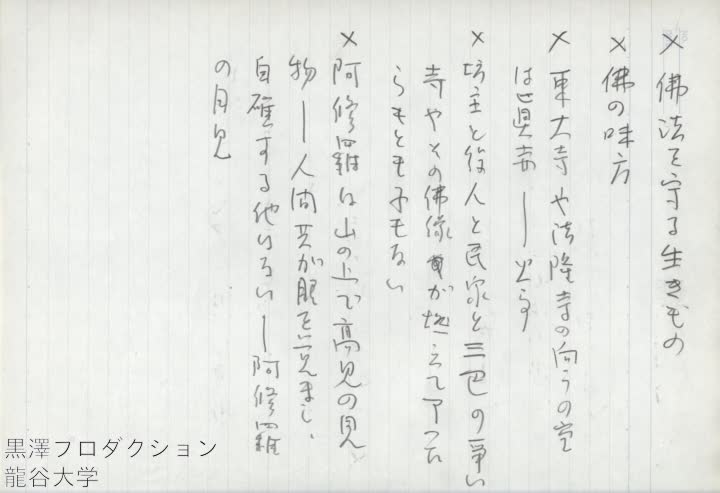 × 佛法を守る生きもの
× 佛の味方
× 東大寺や法隆寺の向うの空
は真赤 — 火事
× 坊主と役人と民家と三巴の争い
寺やその佛像が燃えて了った
らもとも子もない
× 阿修羅は山の上で高見の見
物 — 人間共が眼を覚まし、
自確する他はない — 阿修羅
の月見
黒澤プロダクション
龍谷大学